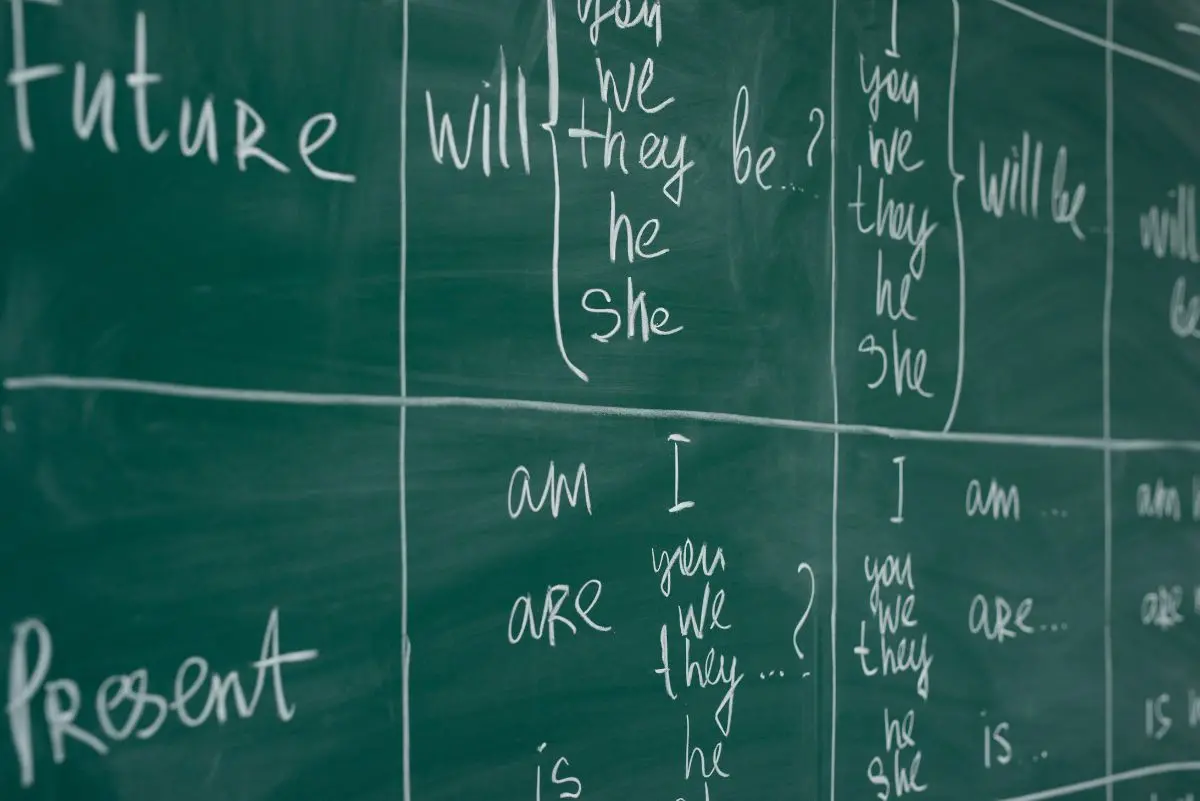 Future
will
you
we
they
he
she
be...?
I
you
we
they
he
she
will be...
will
Present
am I
are
you
we
they...?
is
he
I am ...
you
we
they
are...
he
she
is...
am
are
is